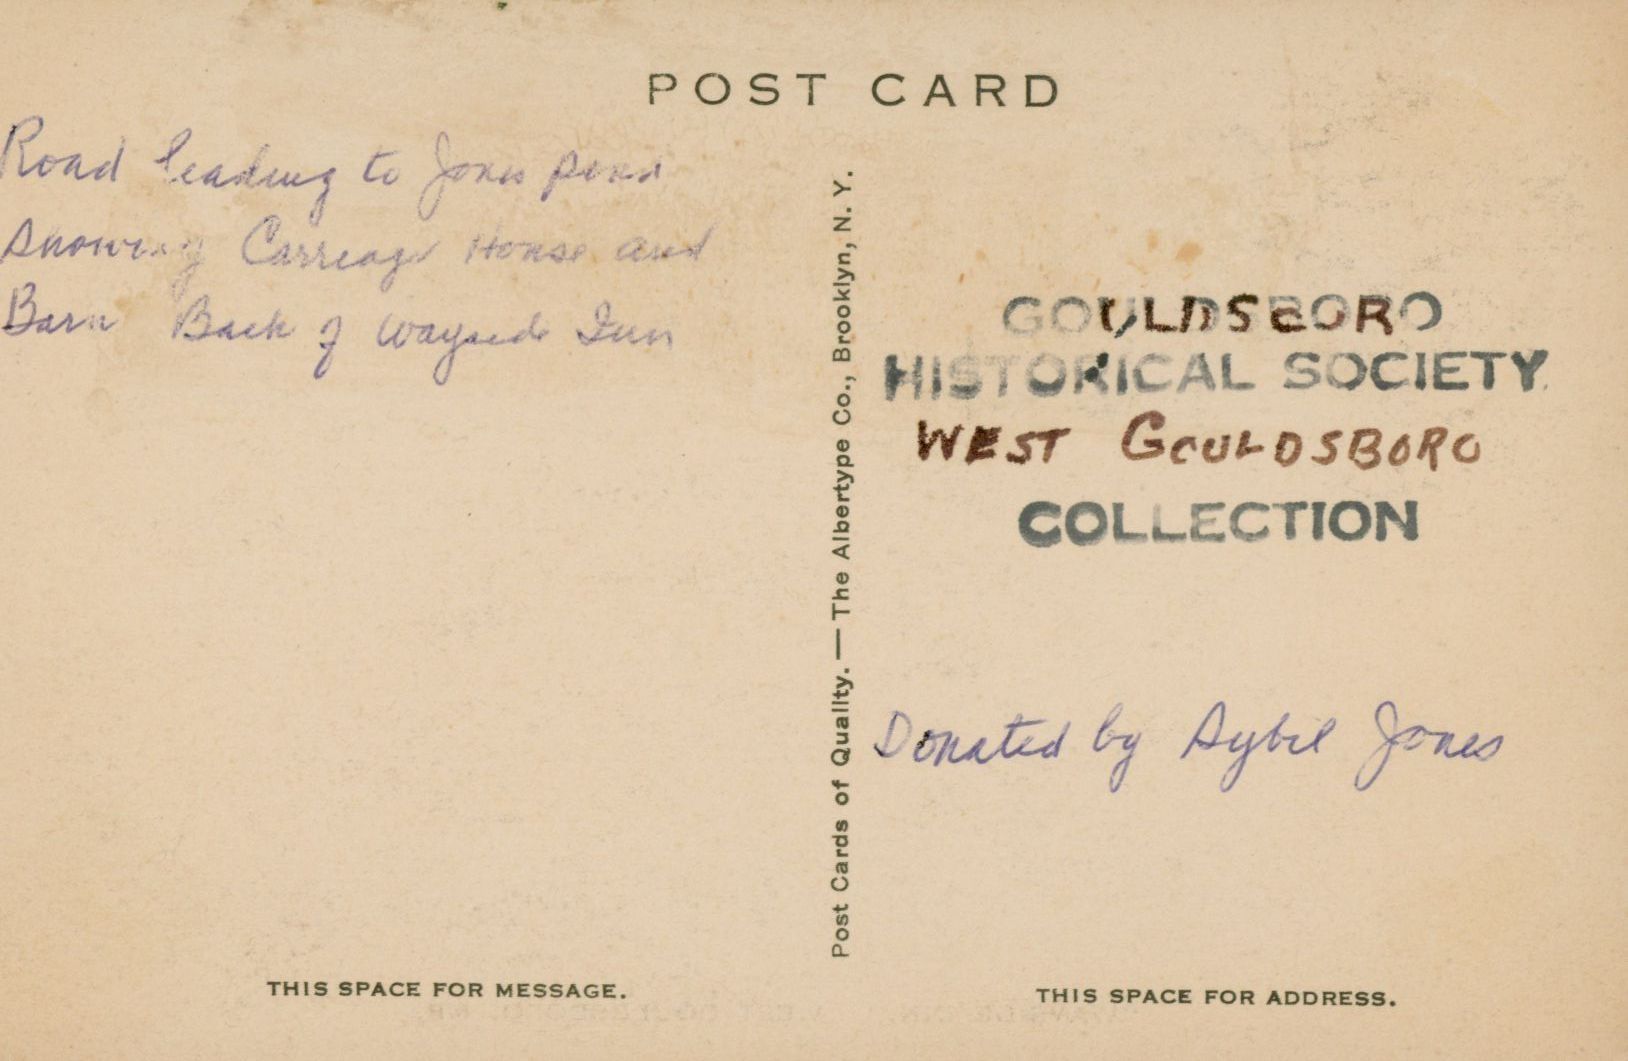 POST CARD
Road leading to Jones Pond
Showing Carriage House and
Barn Back of Wayside Inn
Post Cards of Quality. — The Albertype Co., Brooklyn, N. Y.
GOULDSBORO
HISTORICAL SOCIETY
WEST GOULDSBORO
COLLECTION
Donated by Sybil Jones
THIS SPACE FOR MESSAGE.
THIS SPACE FOR ADDRESS.